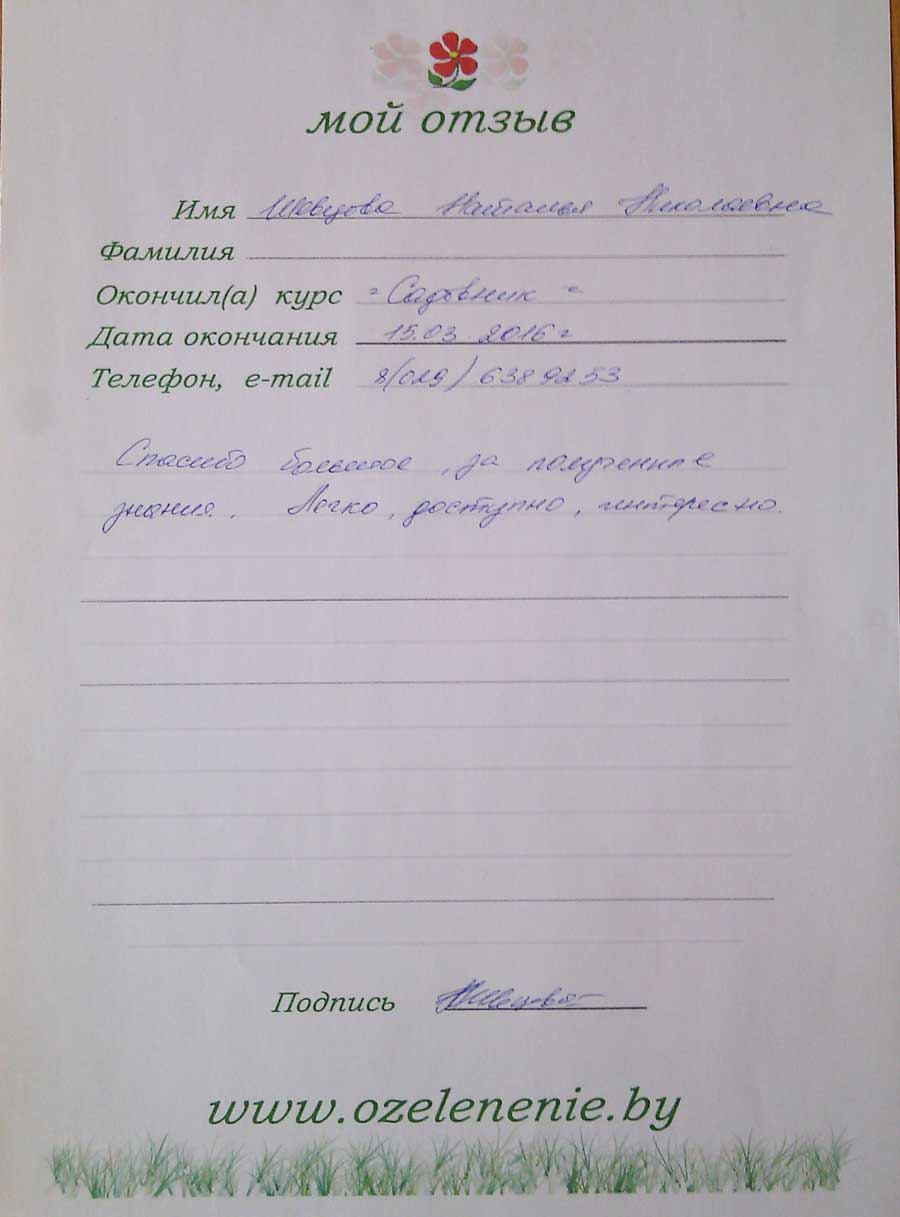 мой отзыв
Имя Шевцова Наталья Николаевна
Фамилия
Окончил(а) курс "Садовник"
Дата окончания 15.03 2016 г
Телефон, e-mail 8(029) 638 92 53
Спасибо большое, за полученные
знания. Легко, доступно, интересно.
Подпись НШевцова
www.ozelenenie.by